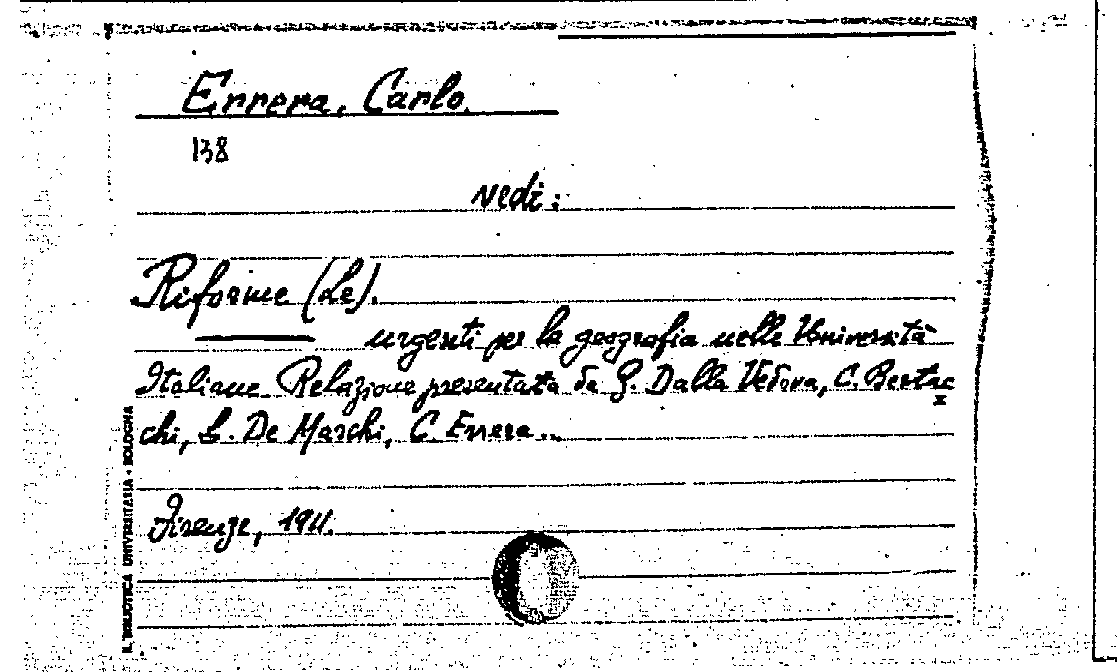 Errera, Carlo.
138
vedi:
Riforme (Le).
urgenti per la geografia nelle Università
Italiane. Relazione presentata da G. Dalla Vedova, C. Bertac
chi, L. De Marchi, C. Errera...
Firenze, 1911.
R. BIBLIOTECA UNIVERSITARIA - BOLOGNA